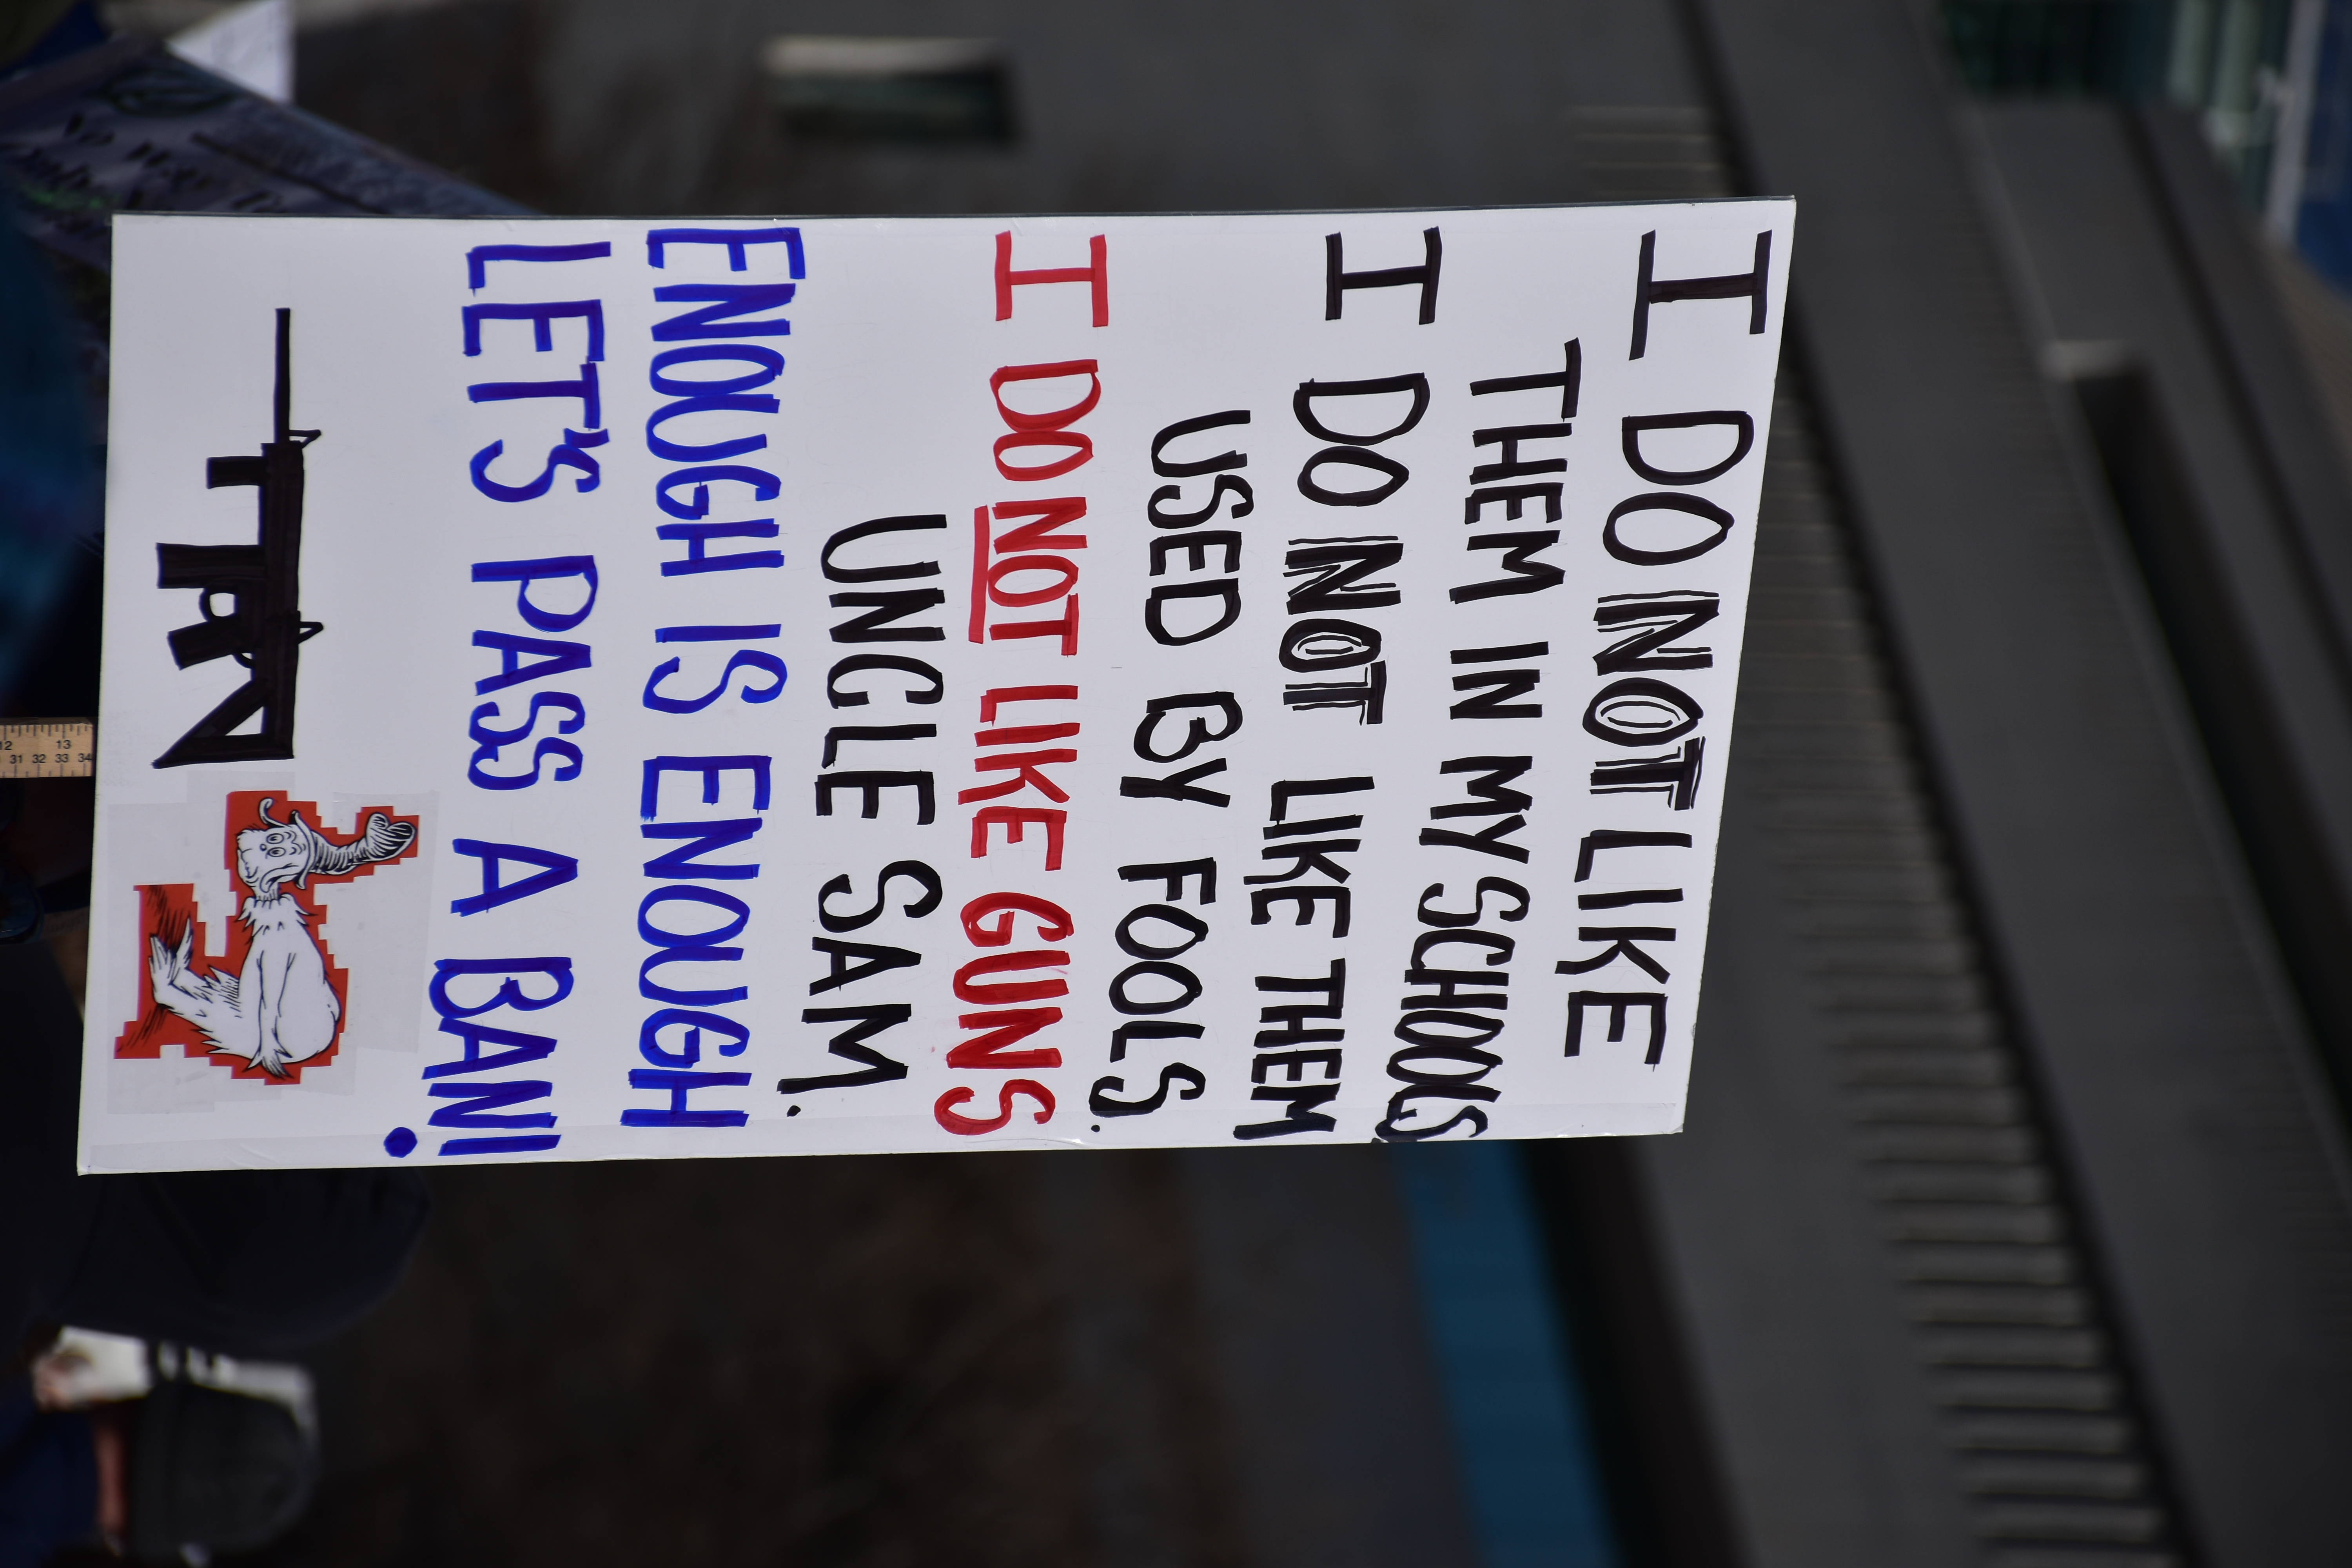 I DO NOT LIKE
THEM IN MY SCHOOLS
I DO NOT LIKE THEM
USED BY FOOLS.
I DO NOT LIKE GUNS
UNCLE SAM.
ENOUGH IS ENOUGH
LET'S PASS A BAN!
12 13
31 32 33 34